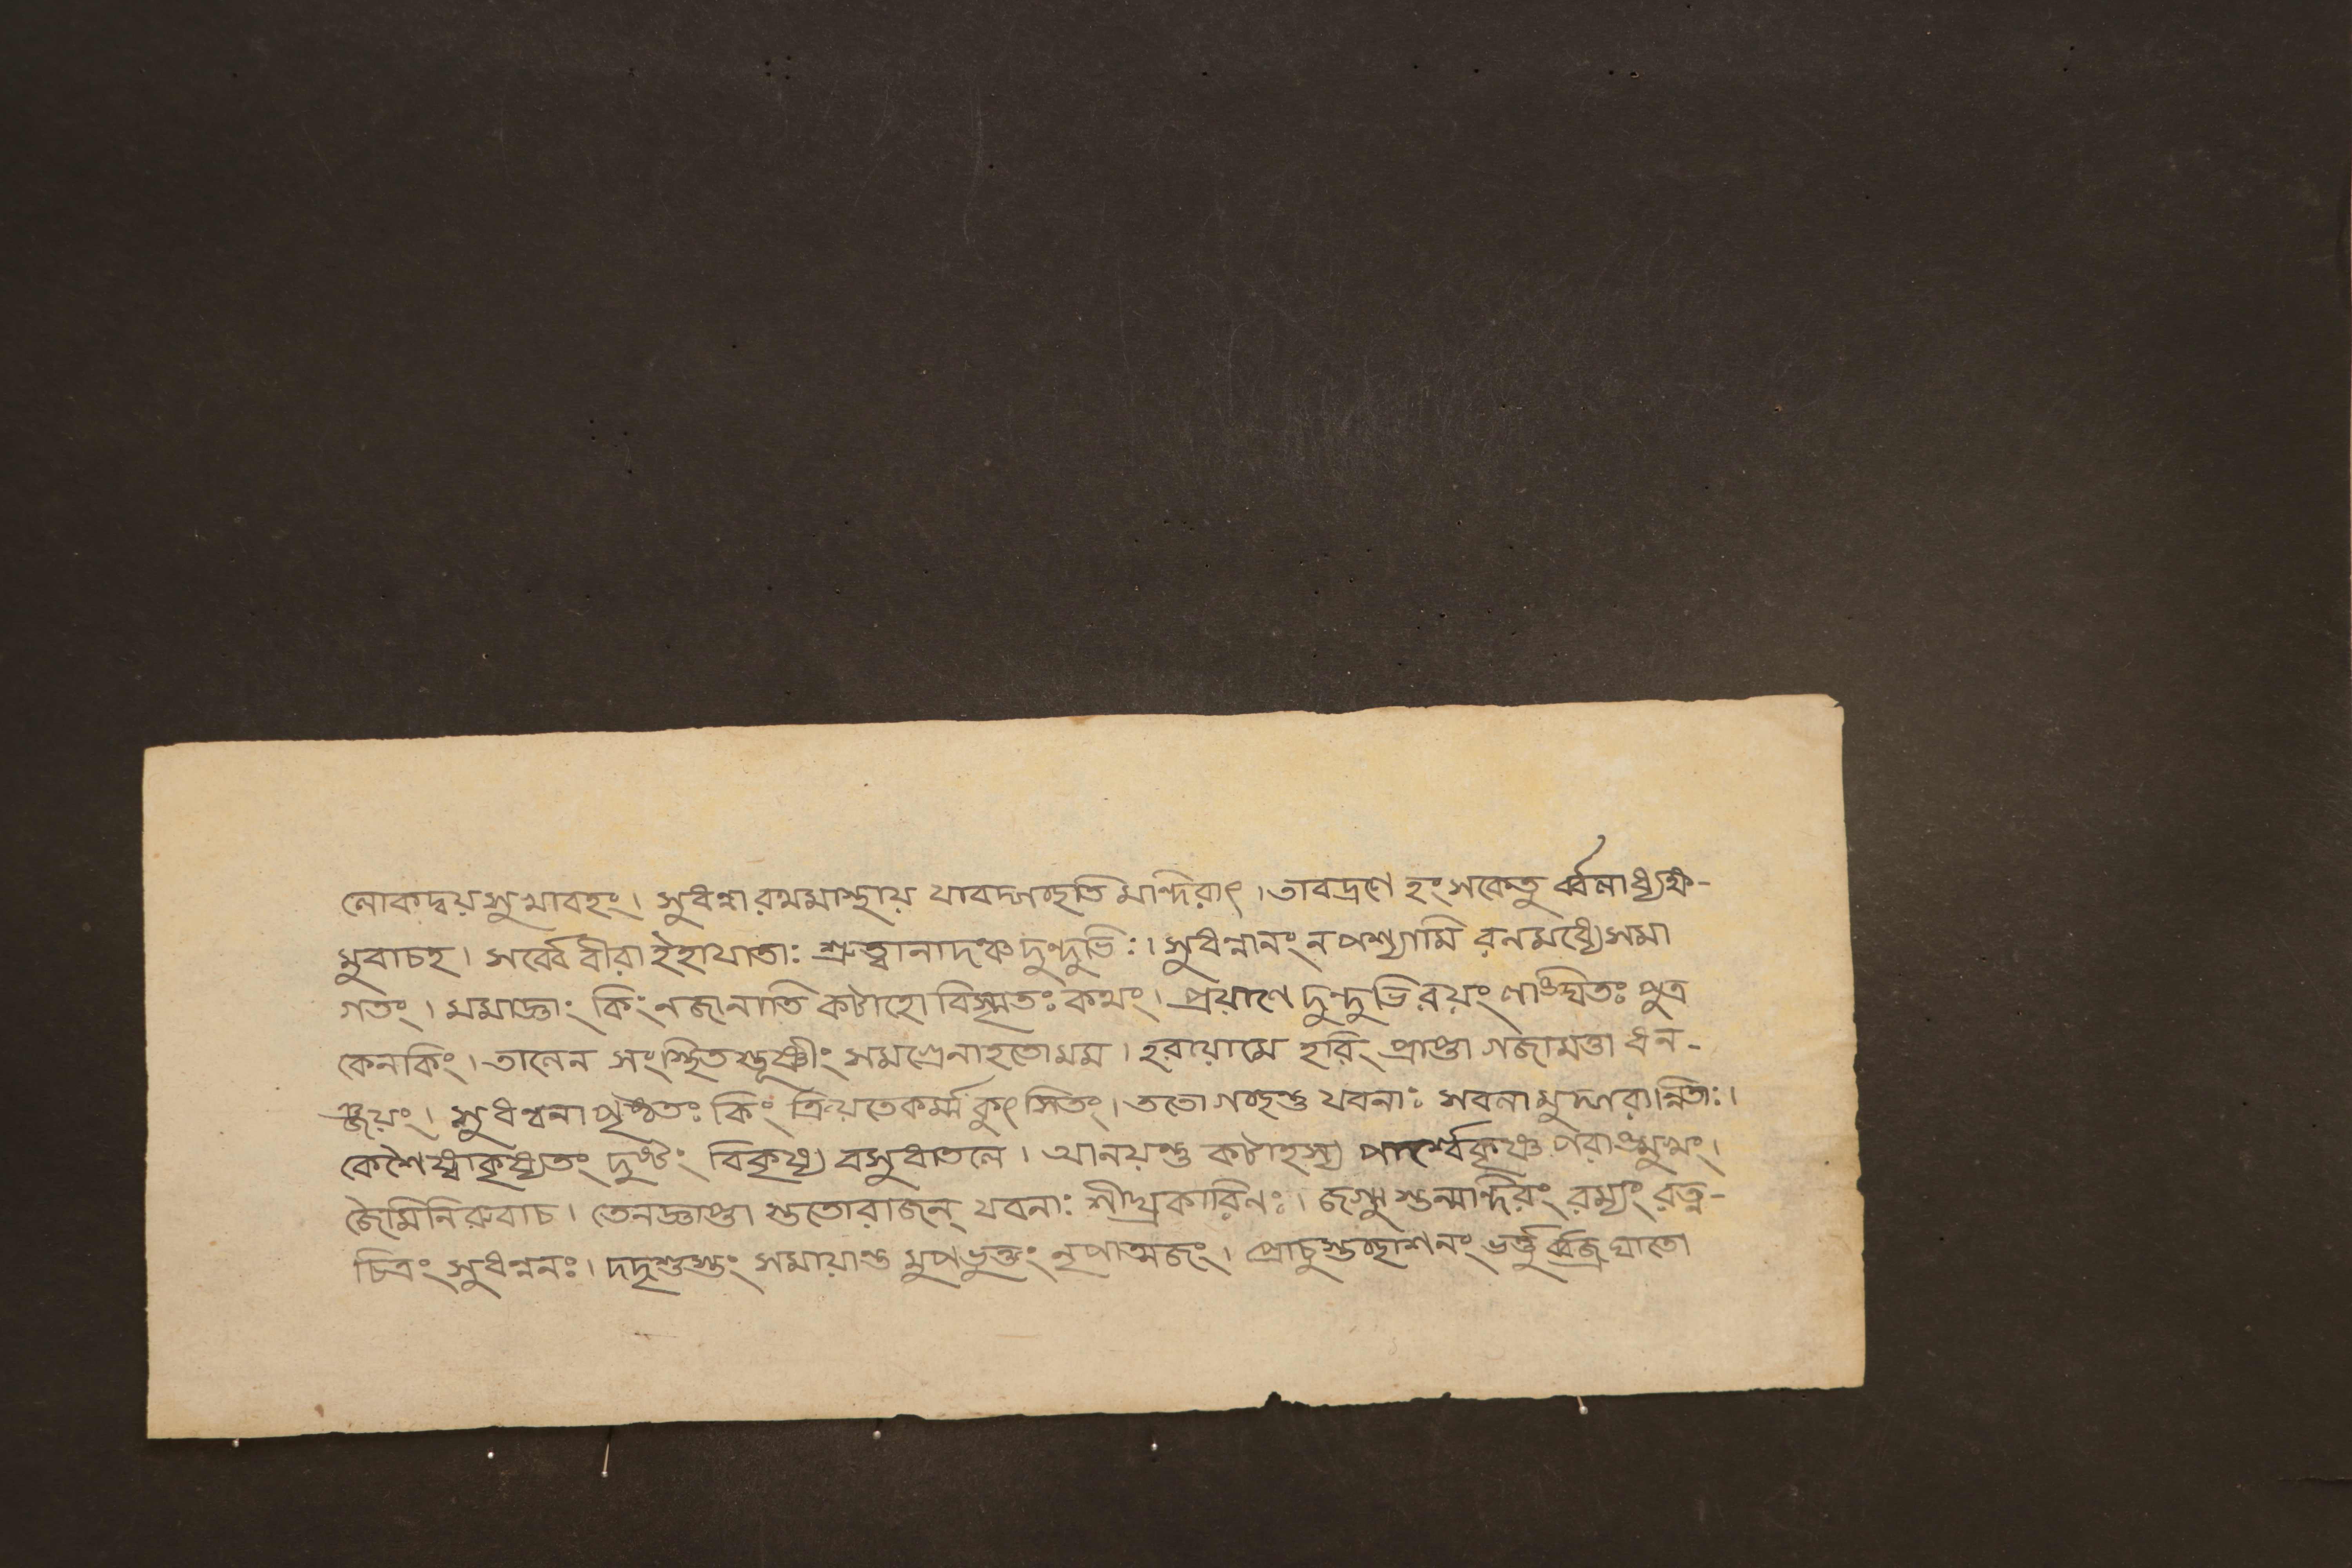 লোকদ্বয়সুখাবহং। সুধন্বা রথমাস্থায় যাবদ্গচ্ছতি মান্দিরাৎ। তাবদ্রণে হংসকেতু র্ব্বলাধ্যক্ষ-
মুবাচহ। সর্ব্বে বীরা ইহাযাতাঃ শ্রুত্বানাদঞ্চ দুন্দুভিঃ। সুধন্বানং ন পশ্যামি রনমধ্যে সমা
গতং। মমাজ্ঞাং কিং নজানাতি কটাহো বিস্মৃতঃ কথং। প্রয়াণে দুন্দুভিরয়ং লাঙ্ঘিতঃ পুত্র
কেনকিং। তালেন সংস্থিত স্তূষ্ণীং সমগ্রেনাহতোমম। হরায়ামে হরিং প্রাপ্তা গজামত্তা ধন-
ঞ্জয়ং। সুধন্বনা পৃষ্ঠতঃ কিং ক্রিয়তেকর্ম্ম কুৎসিতং। ততো গচ্ছন্তু যবনাঃ সবলা মুদ্গরান্বিতাঃ।
কেশৈষ্বাকৃষ্যতং দুষ্টং বিকৃষ্য বসুধাতলে। আনয়ন্তু কটাহস্য পার্শ্বেকৃষ্ণ পরাঙ্মুখং।
জৈমিনিরুবাচ। তেনজ্ঞাপ্তা স্ততোরাজন্ যবনাঃ শীঘ্রকারিনঃ। জগ্মু স্তন্মান্দিরং রম্যং রত্ন-
চিত্রং সুধন্বনঃ। দদৃশুস্তং সমায়ান্ত মুপভুক্তং নৃপাত্মজং। প্রোচুস্তচ্ছাশনং ভর্ত্তু র্ব্বজ্রিঘাতো